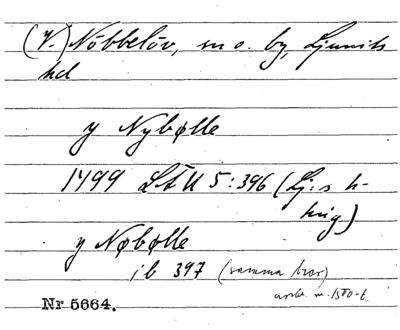 (V.) Nöbbelöv, sn o. by, Ljunits
hd
y Nybølle
1499 LÅU 5:396 (Lj:s h-
hrig)
y Nøbølle
ib 397 (samma brev)
avskr. m. 1500-t.
Nr 5664.